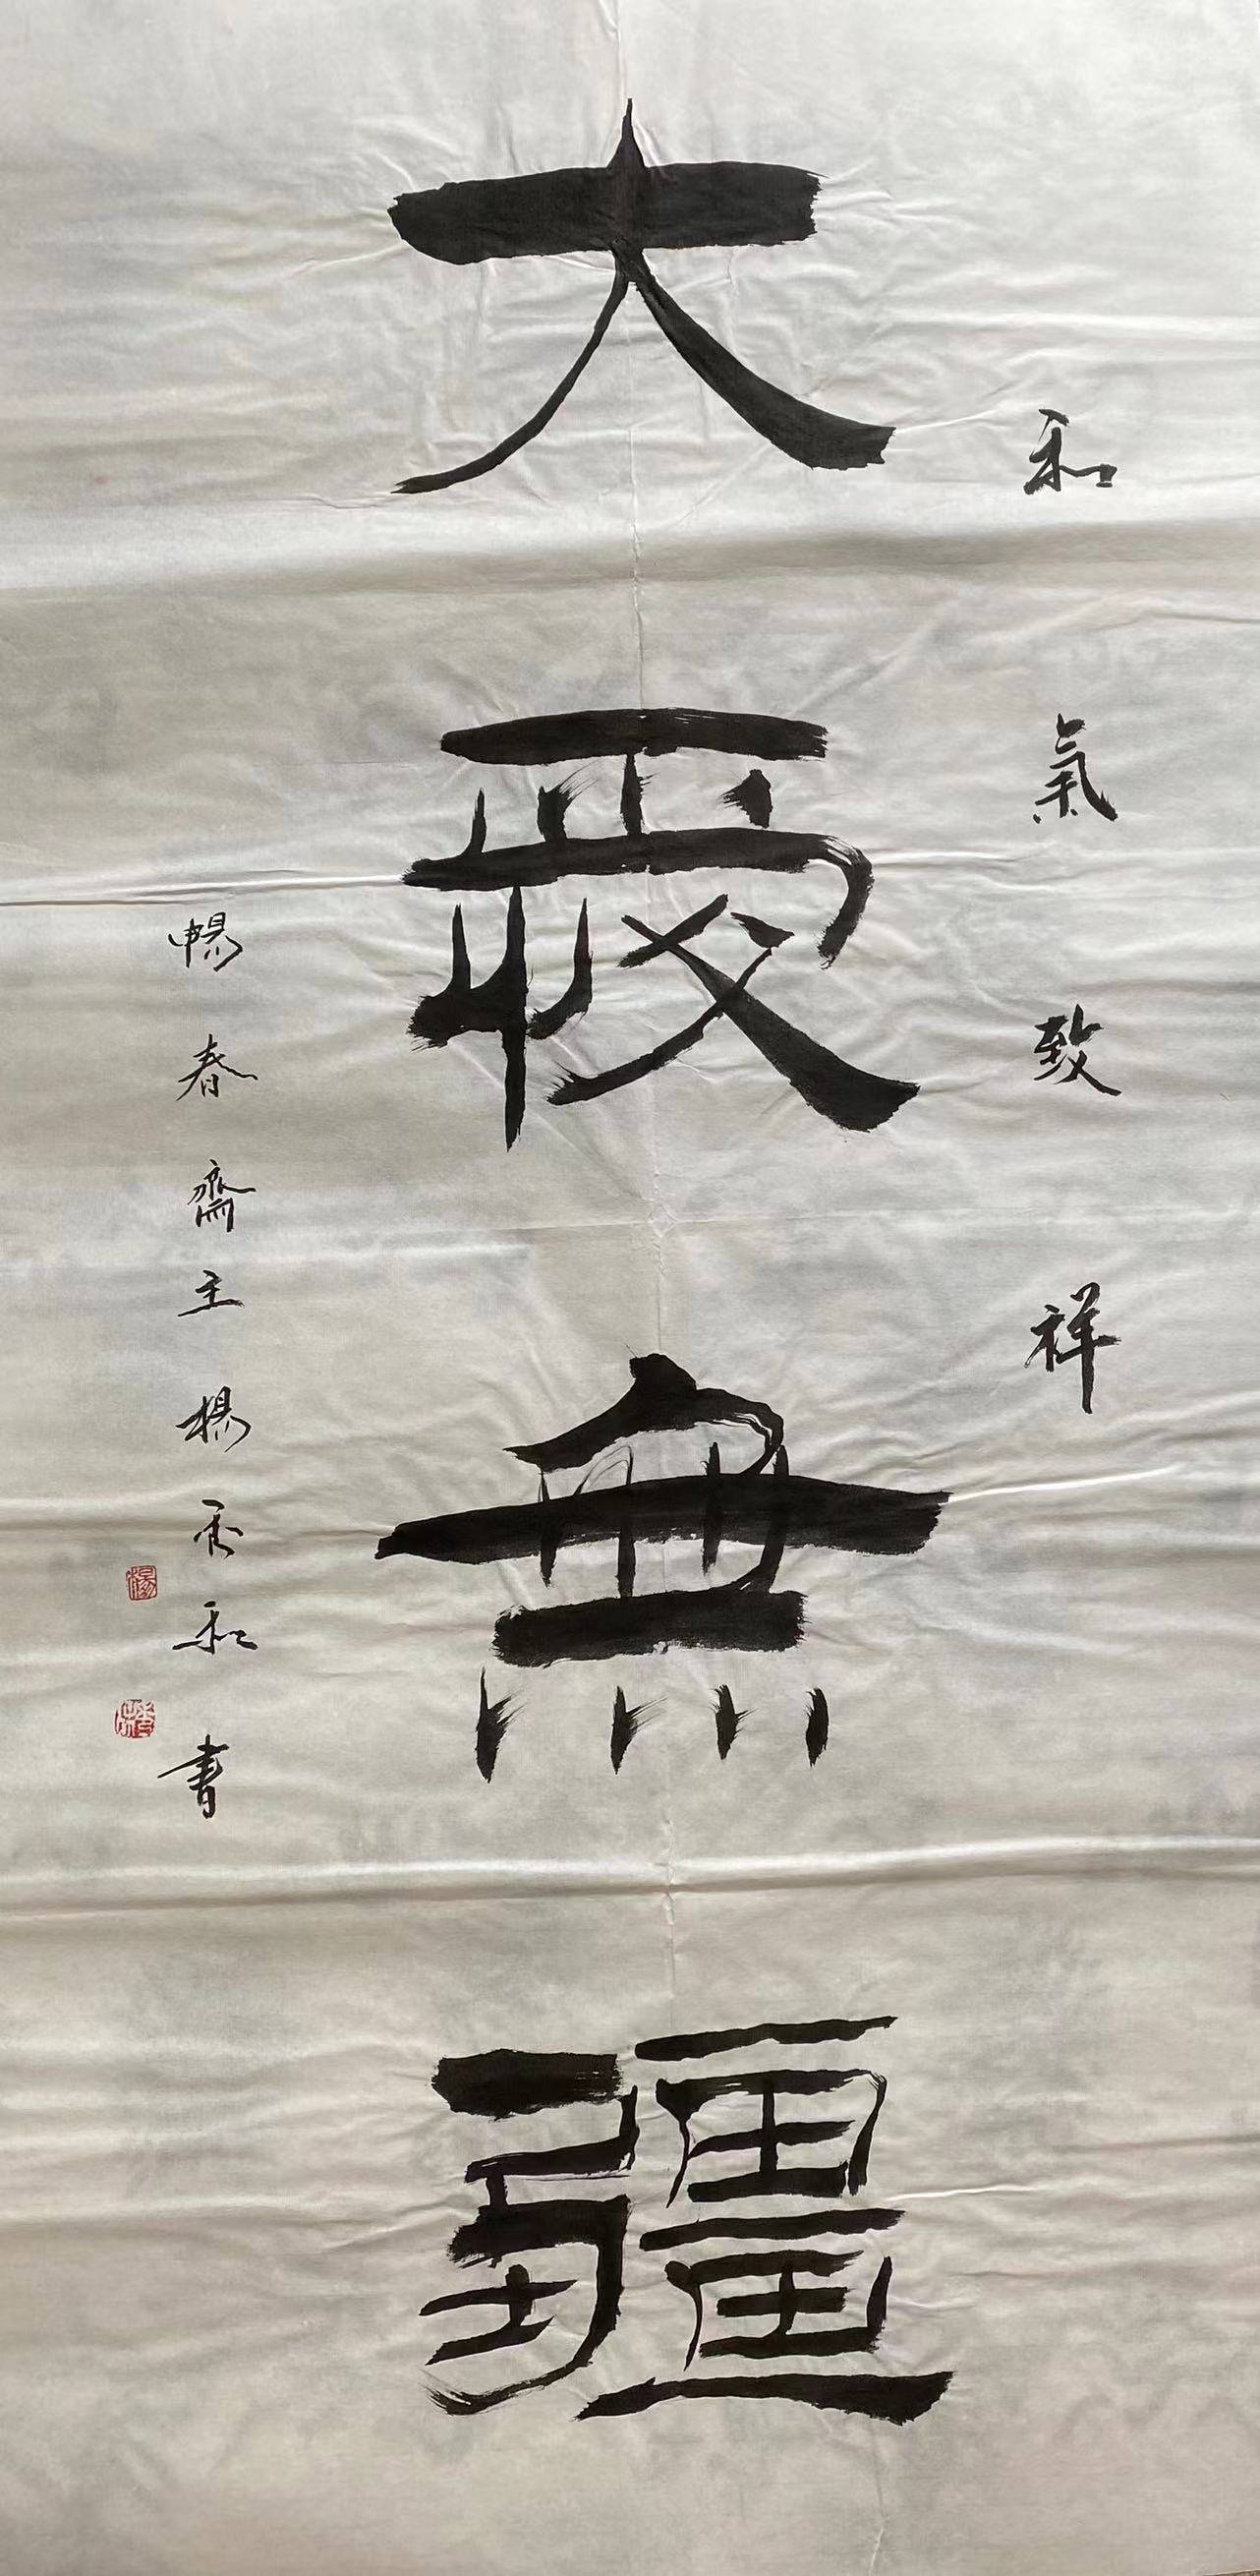 和氣致祥
大愛無疆
暢春齋主楊秀和書